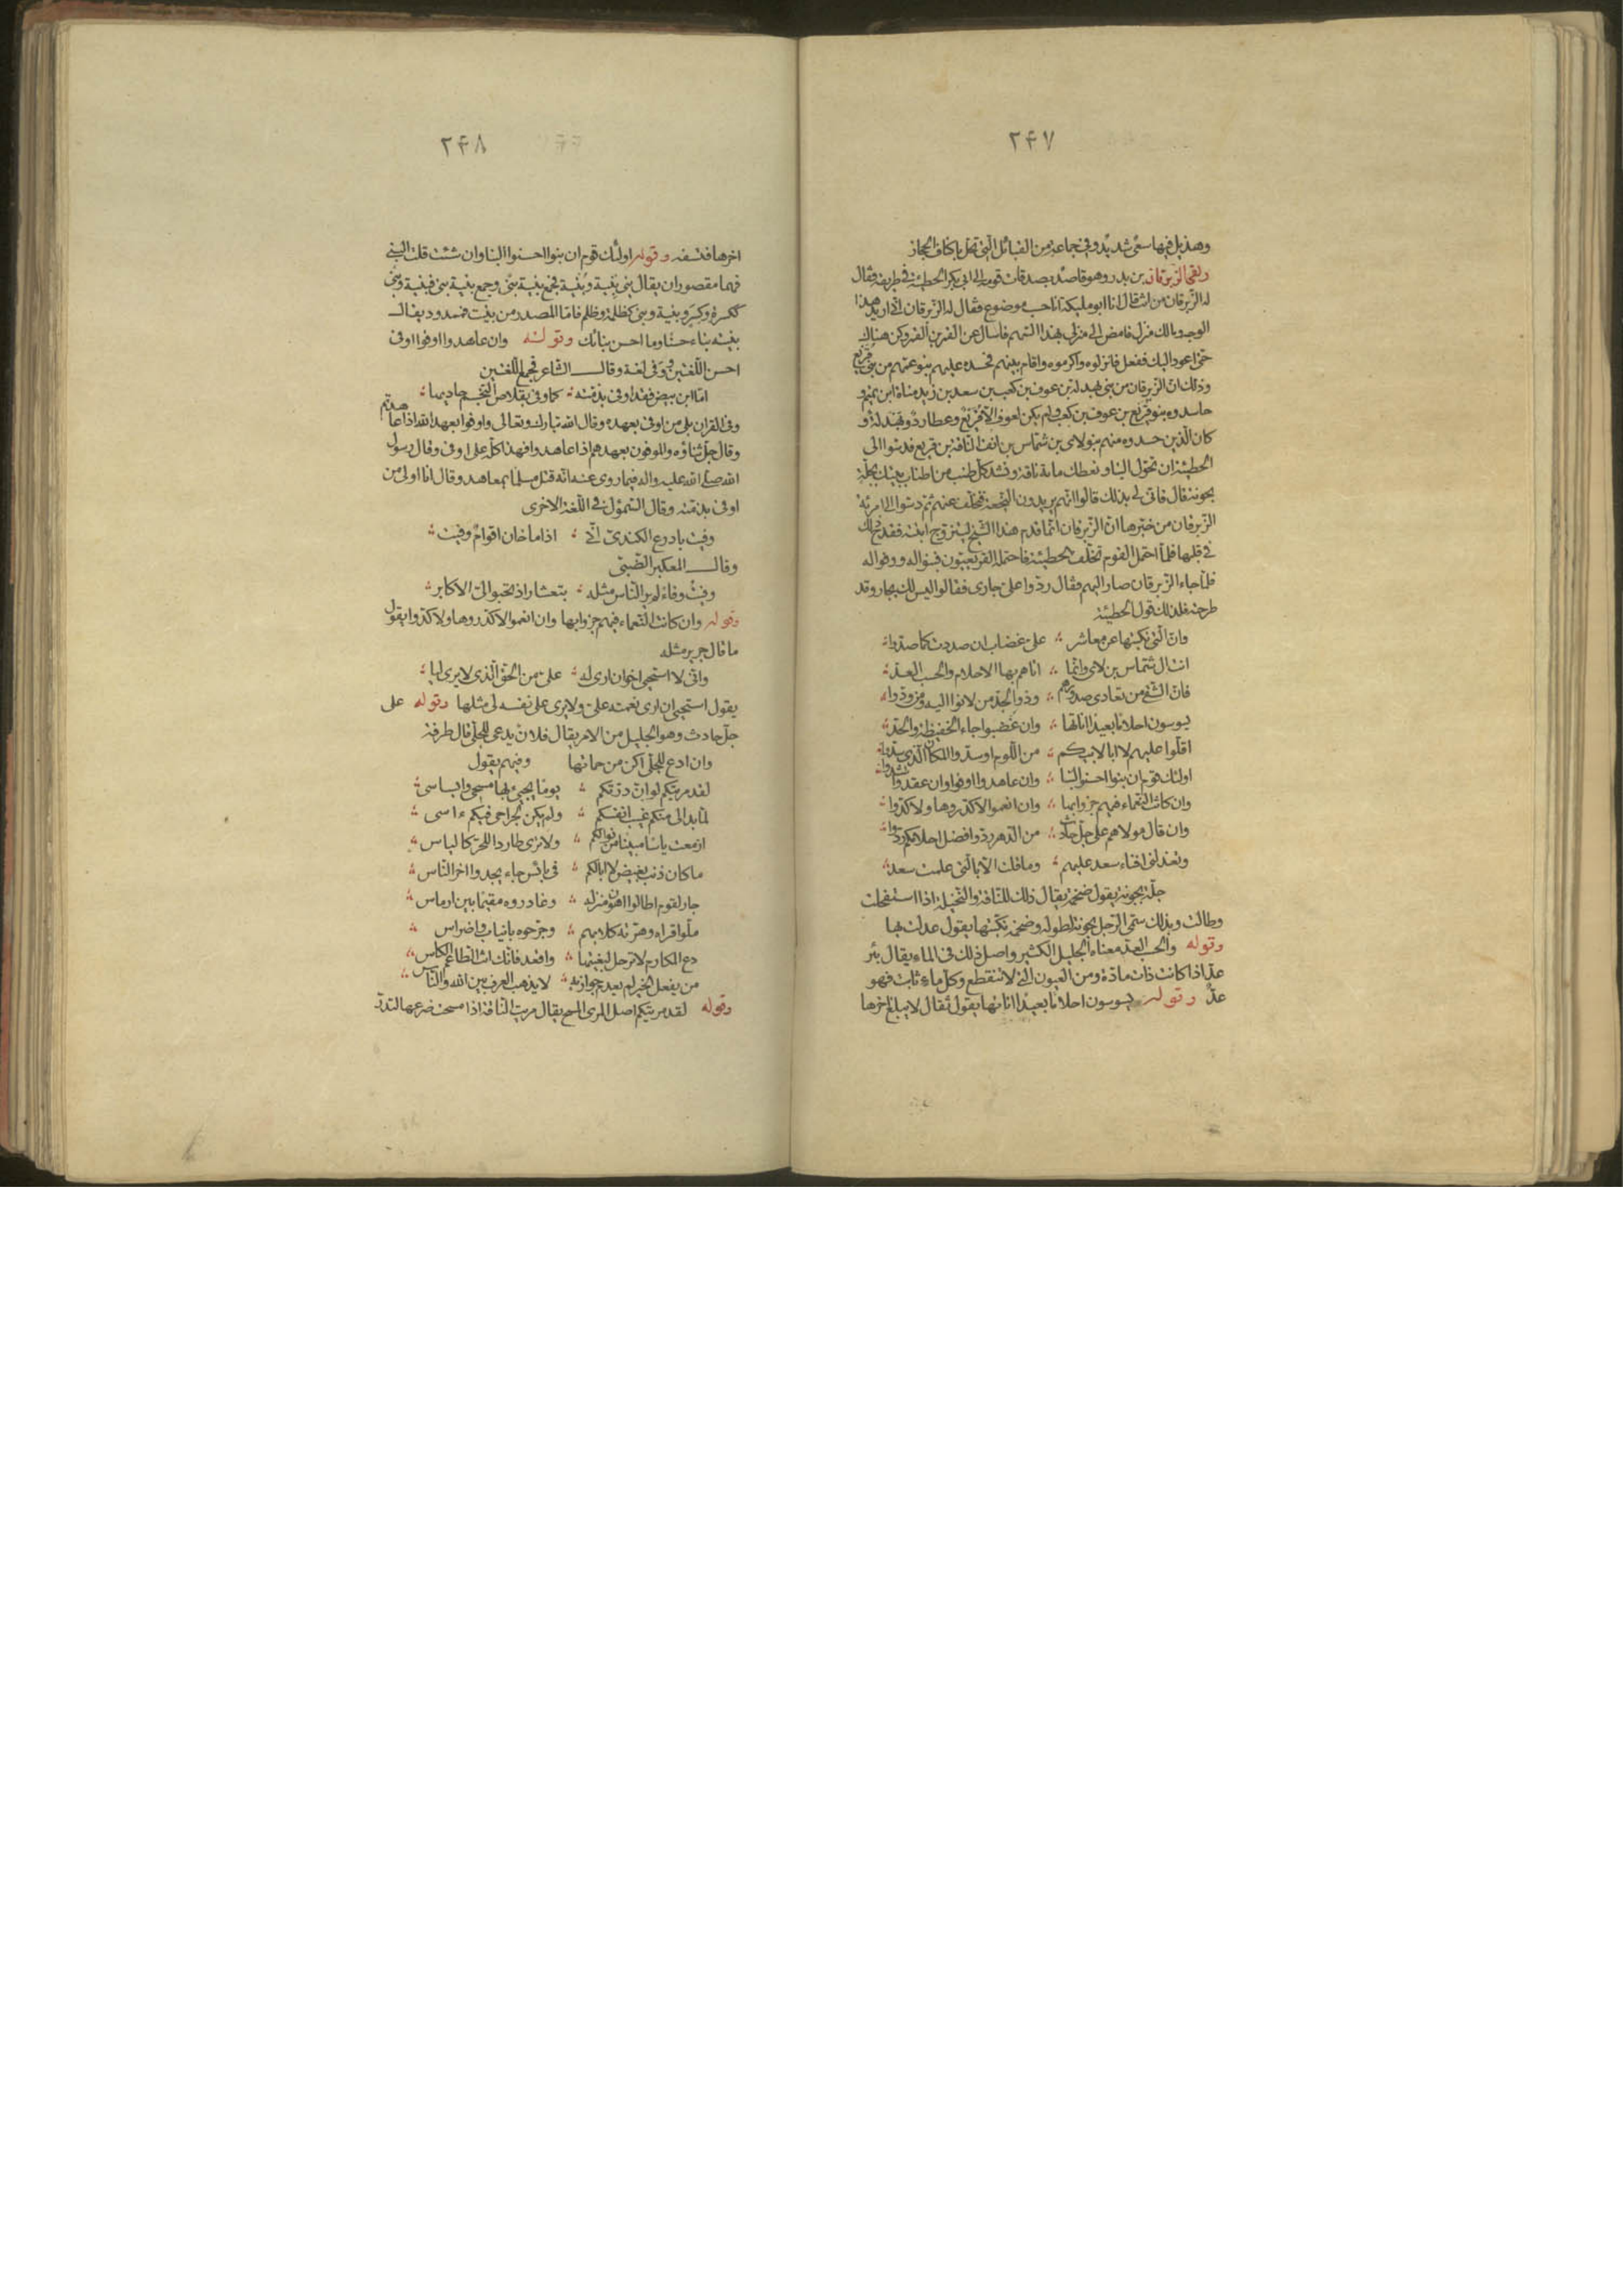 ٢۴٧
وهذيل فيها سعى شديد وفى جماعة من القبائل التى تحل باكناف الحجاز
ولقى الزبرقان بن بدر وهو قاصد بصدقات قومه الى ابى بكر الحطيئة فى طريقه فقال
له الزبرقان من انت قال انا ابو مليكة انا حسب موضوع فقال له الزبرقان انى اريد هذا
الوجه ومالك منزل فامض الى منزلى بهذا السهم فاسال عن القمر بن القمر وكن هناك
حتى اعود اليك ففعل فانزلوه واكرموه واقام بينهم فحسده عليهم بنو عمهم من بنى قريع
وذلك ان الزبرقان من بنى بهدلة بن عوف بن كعب بن سعد بن زيد مناة ابن تميم و
حاسدوه بنو قريع بن عوف بن كعب ولم يكن لعوف الا قريع وعطارد وبهدلة و
كان الذين حسدوه منهم بنو لاى بن شماس بن انف الناقة بن قريع فدسوا الى
الحطيئة ان تحول الينا ونعطك مائة ناقة ونشد كل طنب من اطناب بيتك بجلة
بحونة قال فانى لى بذلك قالوا انهم يريدون النجعة فتخلف عنهم ثم دسوا الى امرئة
الزبرقان من خبرها ان الزبرقان انما قدم هذا الشيخ ليتزوج ابنته فقدح ذلك
فى قلبها فلما احتمل القوم تخلف الحطيئة فاحتمله القريعيون فبنوا له ووفوا له
فلما جاء الزبرقان صار اليهم وقال ردوا على جارى فقالوا ليس لك بجار وقد
طرحته فلذلك قول الحطيئة
وان التى نكبتها عن معاشر ∴ على غضاب ان صددت كما صدوا
اتت ال شماس بن لاى وانما ∴ اتاهم بها الاحلام والحسب العد
فان الشقى من تعادى صدورهم ∴ وذو الجد من لانوا اليه ومن ودوا
يسوسون احلاما بعيدا اناتها ∴ وان غضبوا جاء الحفيظة والحقد
اقلوا عليهم لا ابا لابيكم ∴ من اللوم او سدوا المكان الذى سدوا
اولئك قوم ان بنوا احسنوا البنا ∴ وان عاهدوا اوفوا وان عقدوا شدوا
وان كانت النعماء فيهم جزوا بها ∴ وان انعموا لا كدروها ولا كدوا
وان قال مولاهم على جل حادث ∴ من الدهر ردوا فضل احلامكم ردوا
وتعذلنى افناء سعد عليهم ∴ وما قلت الا بالتى علمت سعد
جلة بحونة يقول ضخمة يقال ذلك للناقة والنخيلة اذا استفحلت
وطالت وبذلك سمى الرجل بحونة لطوله وضخمه نكبتها يقول عدلت بها
وقوله والحسب العد معناه الجليل الكثير واصل ذلك فى الماء يقال بئر
عد اذا كانت ذات مادة ومن العيون التى لا تنقطع وكل ماء ثابت فهو
عد وقوله يسوسون احلاما بعيدا اناتها يقول ثقال لا يبلغ اخرها
٢۴٨
اخرها فتسفه وقوله اولئك قوم ان بنوا احسنوا البنا وان شئت قلت البنى
فهما مقصوران يقال بنى بنية وبنية فجمع بنية بنى وجمع بنية بنى فبنية وبنى
ككسرة وكسر وبنية وبنى كظلمة وظلم فاما المصدر من بنيت فممدود يقال
بنيته بناء حسنا وما احسن بنائك وقوله وان عاهدوا اوفوا اوفى
احسن اللغتين ووفى لغة وقال الشاعر فجمع اللغتين
اما ابن بيض فقد اوفى بذمته ∴ كما وفى بقلاص النجم حاديها
وفى القران بلى من اوفى بعهده وقال الله تبارك وتعالى واوفوا بعهد الله اذا عاهدتم
وقال جل ثناؤه والموفون بعهدهم اذا عاهدوا فهذا كله على اوفى وقال رسول
الله صلى الله عليه واله فيما روى عنه انه قتل مسلما بمعاهد وقال انا اولى من
اوفى بذمته وقال السموئل فى اللغة الاخرى
وفيت بادرع الكندى انى ∴ اذا ما خان اقوام وفيت
وقال المعكبر الضبى
وفيت وفاء لم ير الناس مثله ∴ بتعشار اذ تحبو الى الاكابر
وقوله وان كانت النعماء فيهم جزوا بها وان انعموا لا كدروها ولا كدوا يقول
ما قال جرير مثله
وانى لا استحيى اخى ان ارى له ∴ على من الحق الذى لا يرى ليا
يقول استحيى ان ارى نعمته على ولا يرى على نفسه لى مثلها وقوله على
جل حادث وهو الجليل من الامر يقال فلان يدعى للجلى قال طرفة
وان ادع للجلى اكن من حماتها وفيهم يقول
لقد مريتكم لو ان درتكم ∴ يوما يجيئ بها مسحى وابساسى
لما بدا لى منكم غيب انفسكم ∴ ولم يكن لجراحى فيكم ءاسى
ازمعت ياسا مبينا من نوالكم ∴ ولا ترى طاردا للحر كالياس
ما كان ذنب بغيض لا ابا لكم ∴ فى بائس جاء يحدوا اخر الناس
جار لقوم اطالوا هون منزله ∴ وغادروه مقيما بين ارماس
ملوا قراه وهرته كلابهم ∴ وجرحوه بانياب واضراس
دع المكارم لا ترحل لبغيتها ∴ واقعد فانك انت الطاعم الكاسى
من يفعل الخير لم يعدم جوازيه ∴ لا يذهب العرف بين الله والناس
وقوله لقد مريتكم اصل المرى المسح يقال مريت الناقة اذا مسحت ضرعها لتدر